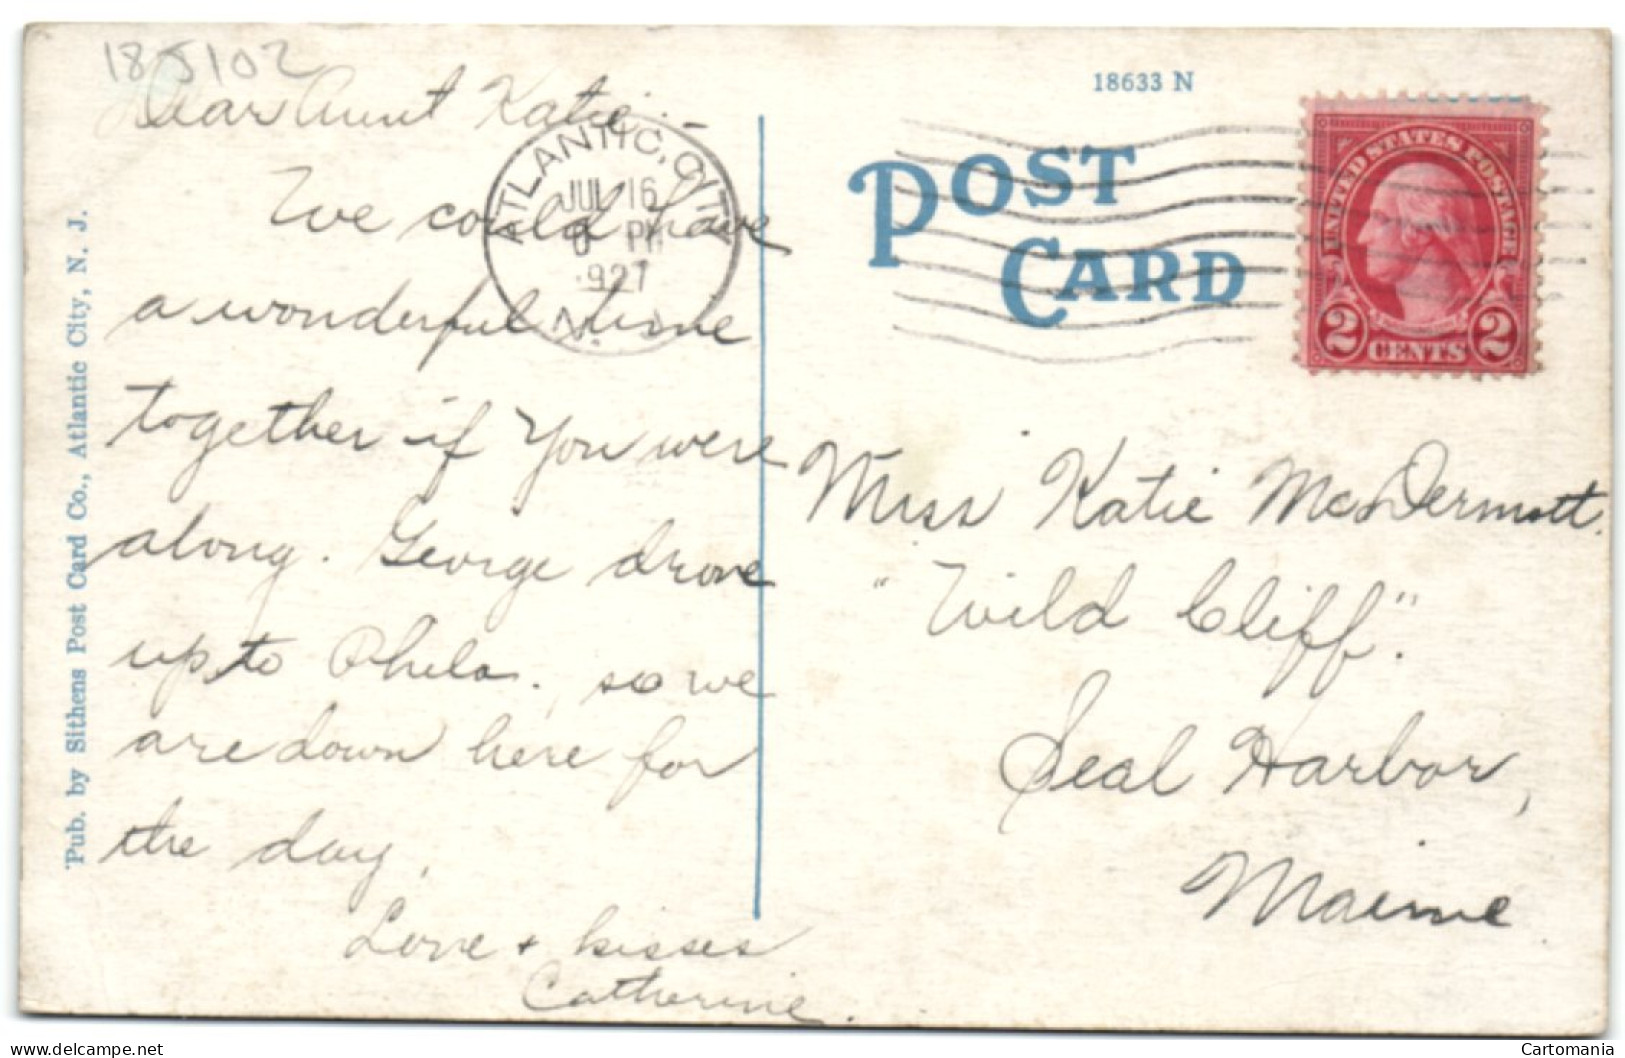 185102
Dear Aunt Katie:-
We could have
a wonderful time
together if you were
along. George drove
up to Phila., so we
are down here for
the day.
Love + kisses
Catherine.
Pub. by Sithens Post Card Co., Atlantic City, N. J.
ATLANTIC CITY
JUL 16
PM
1927
N.
18633 N
POST
CARD
UNITED STATES POSTAGE
2 CENTS 2
Miss Katie McDermott.
"Wild Cliff".
Seal Harbor,
Maine
delcampe.com
Cartomania